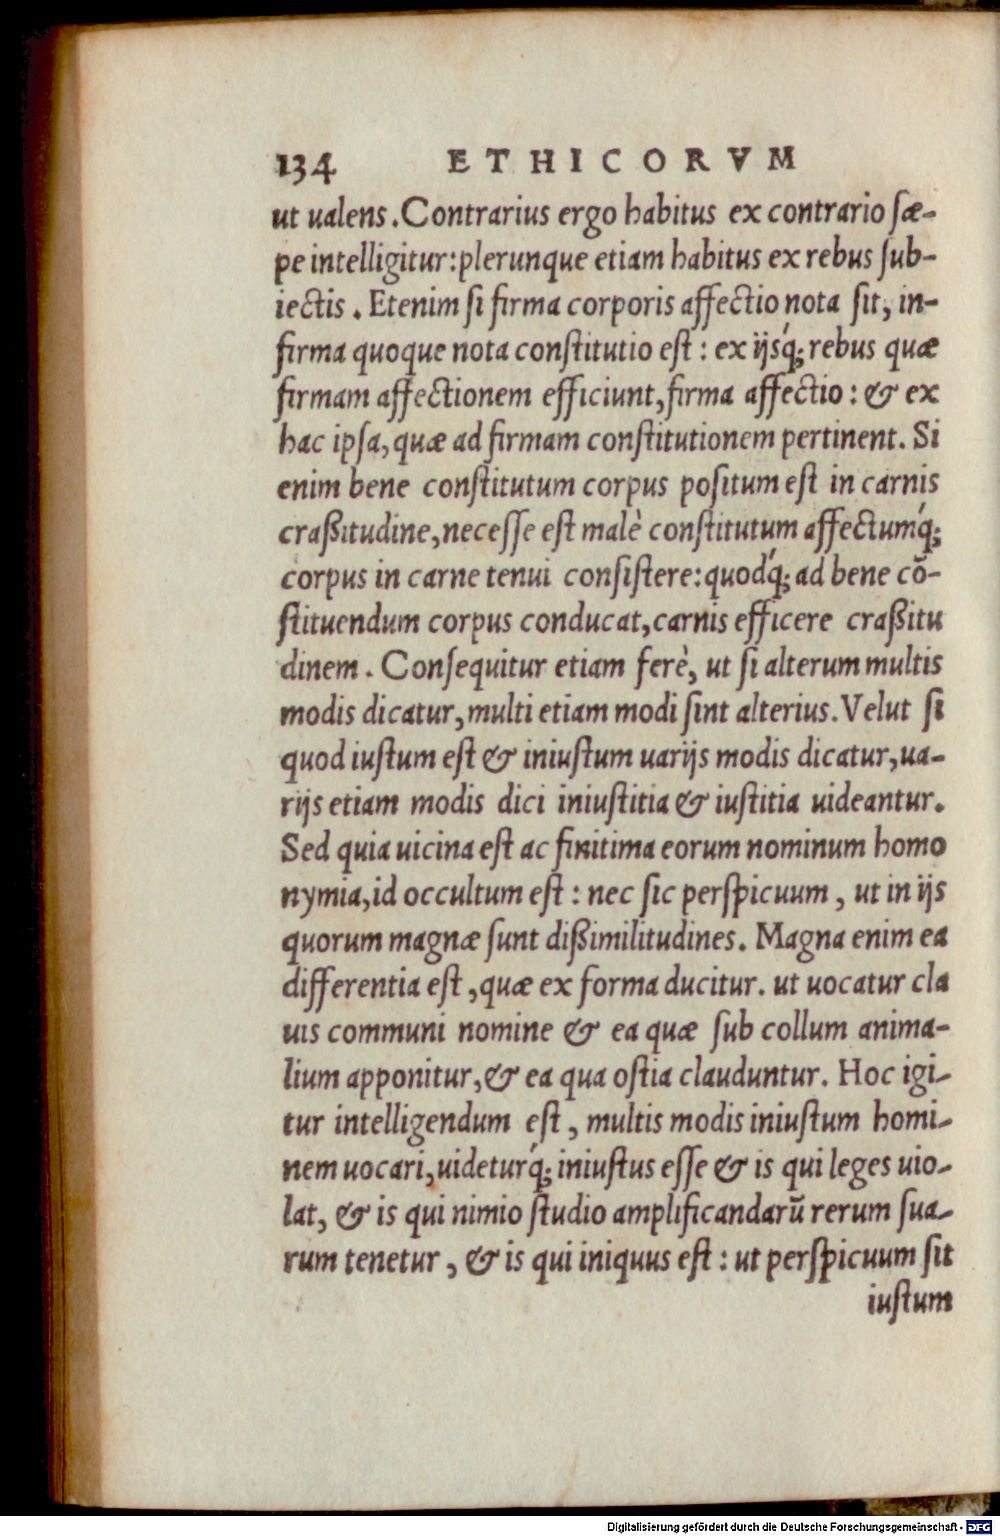 134 ETHICORVM
ut ualens. Contrarius ergo habitus ex contrario sæ-
pe intelligitur: plerunque etiam habitus ex rebus sub-
iectis. Etenim si firma corporis affectio nota sit, in-
firma quoque nota constitutio est: ex ijsq́; rebus quæ
firmam affectionem efficiunt, firma affectio: & ex
hac ipsa, quæ ad firmam constitutionem pertinent. Si
enim bene constitutum corpus positum est in carnis
craßitudine, necesse est malè constitutum affectumq́;
corpus in carne tenui consistere: quodq́; ad bene cō-
stituendum corpus conducat, carnis efficere craßitu
dinem. Consequitur etiam ferè, ut si alterum multis
modis dicatur, multi etiam modi sint alterius. Velut si
quod iustum est & iniustum uarijs modis dicatur, ua-
rijs etiam modis dici iniustitia & iustitia uideantur.
Sed quia uicina est ac finitima eorum nominum homo
nymia, id occultum est: nec sic perspicuum, ut in ijs
quorum magnæ sunt dißimilitudines. Magna enim ea
differentia est, quæ ex forma ducitur. ut uocatur cla
uis communi nomine & ea quæ sub collum anima-
lium apponitur, & ea qua ostia clauduntur. Hoc igi-
tur intelligendum est, multis modis iniustum homi-
nem uocari, uideturq́; iniustus esse & is qui leges uio-
lat, & is qui nimio studio amplificandarū rerum sua-
rum tenetur, & is qui iniquus est: ut perspicuum sit
iustum
Digitalisierung gefördert durch die Deutsche Forschungsgemeinschaft - DFG